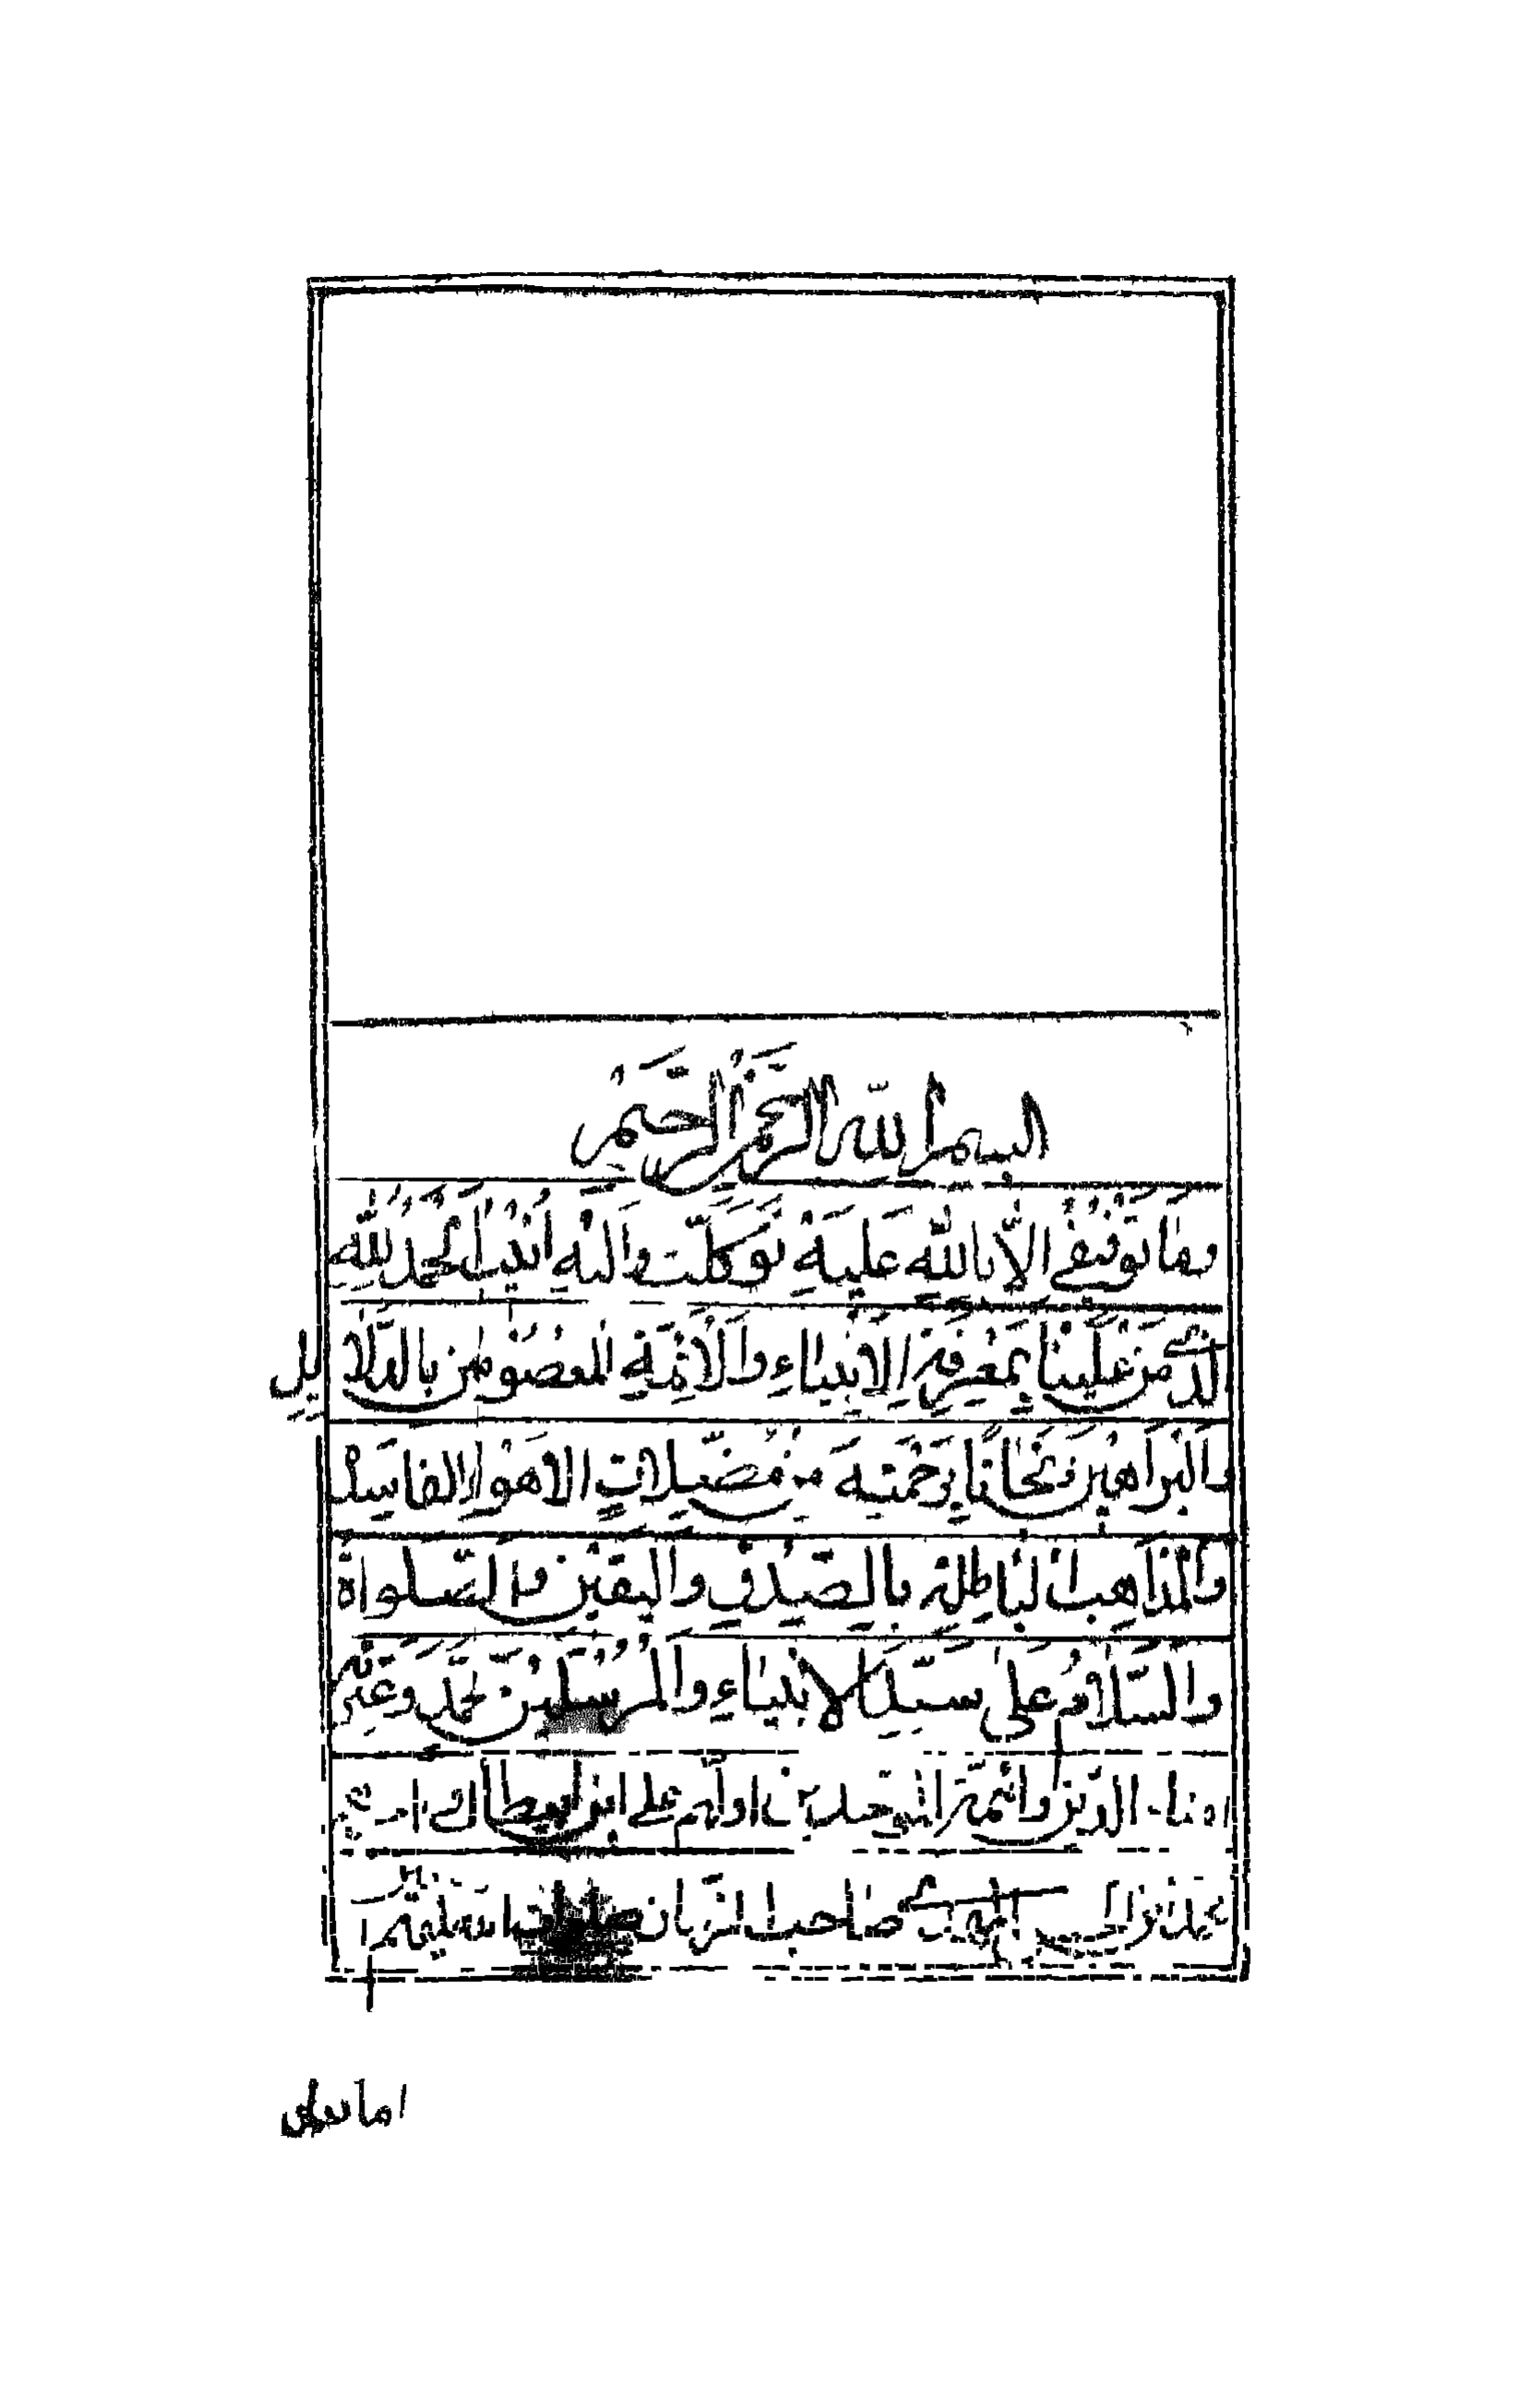 البسم الله الرَّحمن الرَّحیم
وَمَا تَوْفِيقِي إلاَّ بالله عَلَيهِ تَوَكَّلْتُ وَاليْهِ اُنيْبُ اَلحَمْدُ للهِ
الَّذي مَنَّ عَلَينا بمَعْرِفَةِ الاَنْبياءِ والْاَئِمَّةِ المعصُوْمِين بالدَّلايل
وَالبَراهِين وَنَجَانَا بِرَحْمَتِهِ من مُضِّلاتِ الاهواءِ الفاسِدة
وَالمذاهِب الباطِلةِ بِالصِّدْقِ واليقين والصّلواة
والسَّلامُ عَلى سَيِّدِ الانبياءِ والمُرْسَلين محَمَّد وَعترته
امناء الدّين وائمّة الموحدين اولهم علي ابن ابيطالب واخرهم
محمد ابن الحسن المهدي صاحب الزّمان صلوات الله عليهم
اما بعد